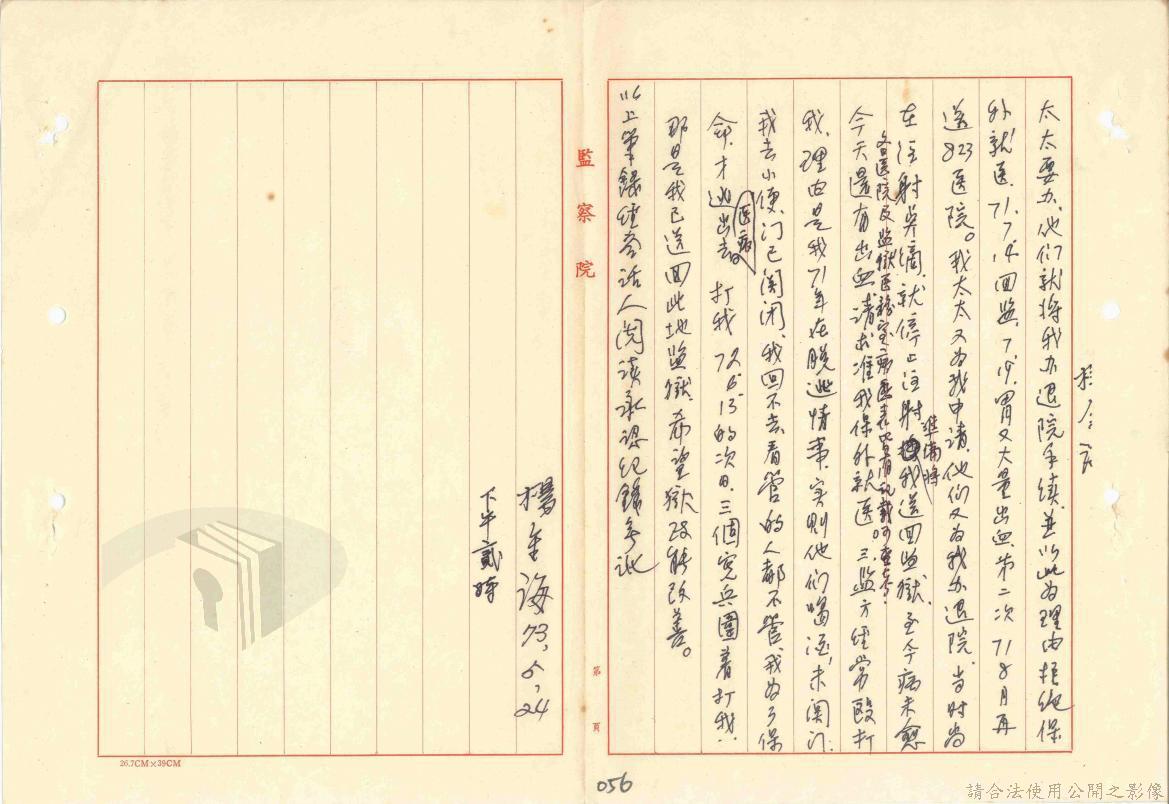 太太要办、他们就将我办退院手续、並以此为理由拒绝保
外就医、71.7.14回监、7.19.胃又大量出血、第二次71.8月再
送823医院。我太太又为我申请、他们又为我办退院、当时尚
在注射点滴、就停止注射準備將我送回监獄、至今病未愈
今天還有出血、请求准我保外就医。三、监方经常毆打
各医院及监獄医務室病历表皆有記載可查考。
我、理由是我71年在脱逃情事、实则他们喝酒、未関门、
我去小便、门已関闭、我回不去看管的人都不管、我为了保
命、才逃出去医病。打我72.6.13的次日、三個憲兵圍着打我、
那是我已送回此地监獄、希望獄政能改善。
以上筆錄经答话人閱读承認纪錄無訛
楊金海73.5.24
下午貳時
監察院
第 頁
26.7CM×39CM
056
請合法使用公開之影像